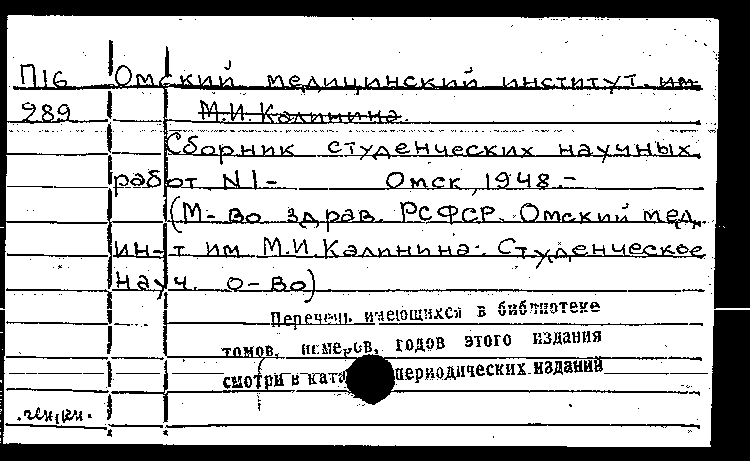 П16 Омский медицинский институт им
289 М.И.Калинина.
Сборник студенческих научных
работ N 1- Омск, 1948.-
(М-во здрав. РСФСР. Омский мед.
ин-т им М.И.Калинина. Студенческое
науч. о-во)
Перечень имеющихся в библиотеке
томов, номеров, годов этого издания
смотри в ката периодических изданий